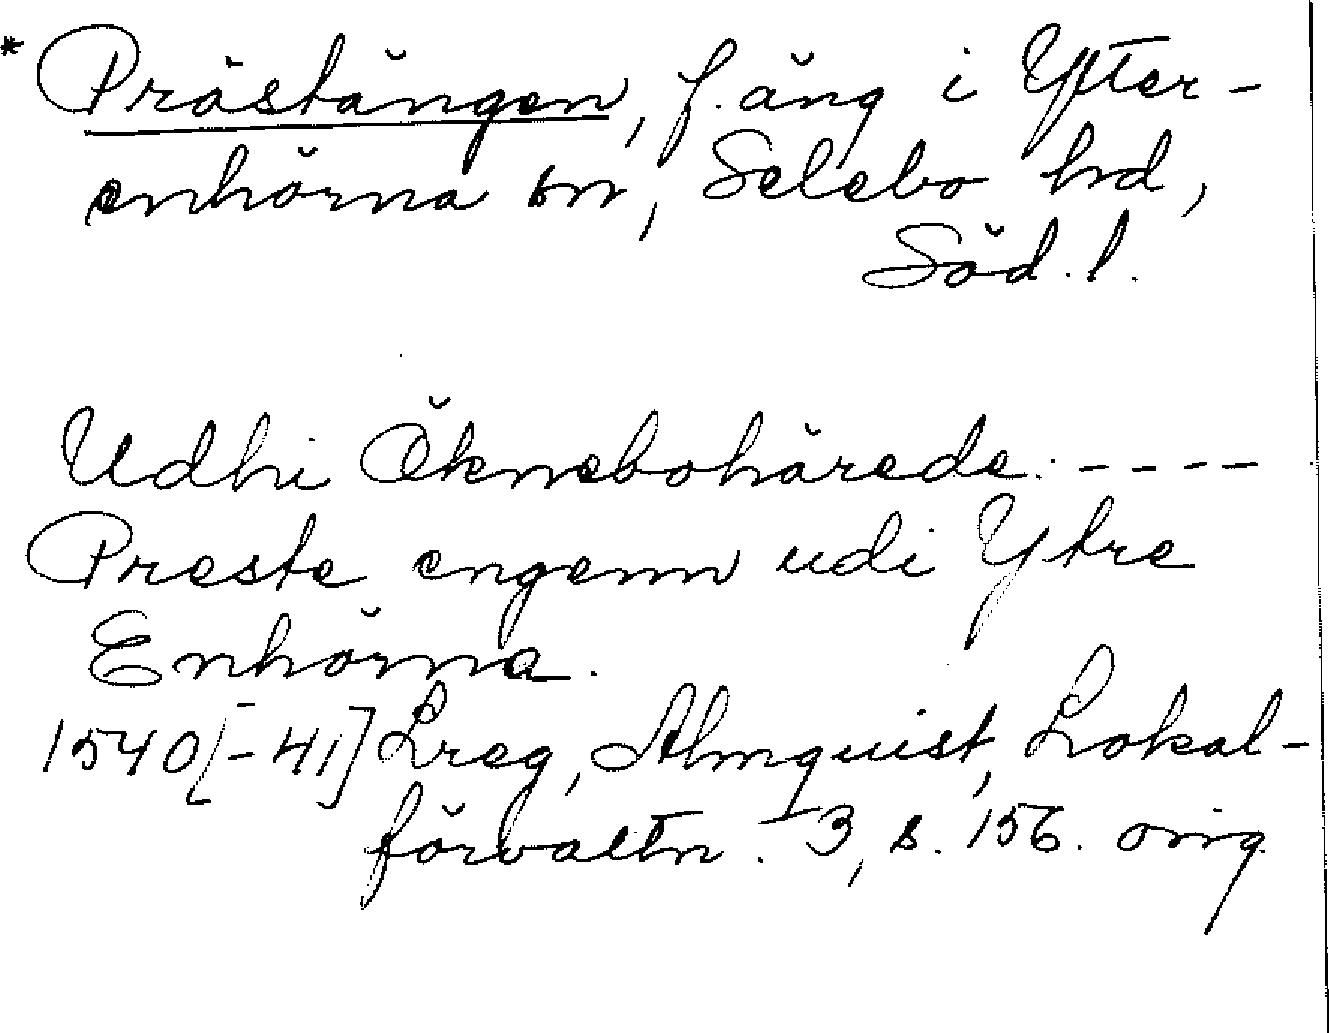 * Prästängen, f. äng i Ytter-
enhörna sn, Selebo hd,
Söd. l.
Udhi Öknebohärede. ----
Preste engenn udi Ytre
Enhörna.
1540[-41] Lreg, Almquist, Lokal-
förvaltn. 3, s. 156. orig.